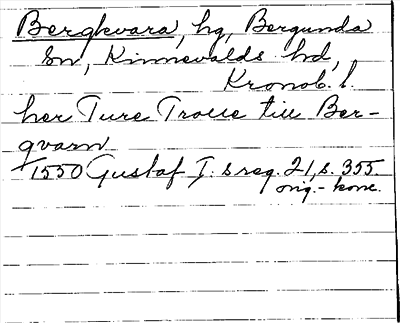 Bergkvara, hg, Bergunda
sn, Kinnevalds hd,
Kronob. l.
her Ture Trolle till Ber-
qvarn
1550 Gustaf I:s reg. 21, s. 355.
orig.-konc.